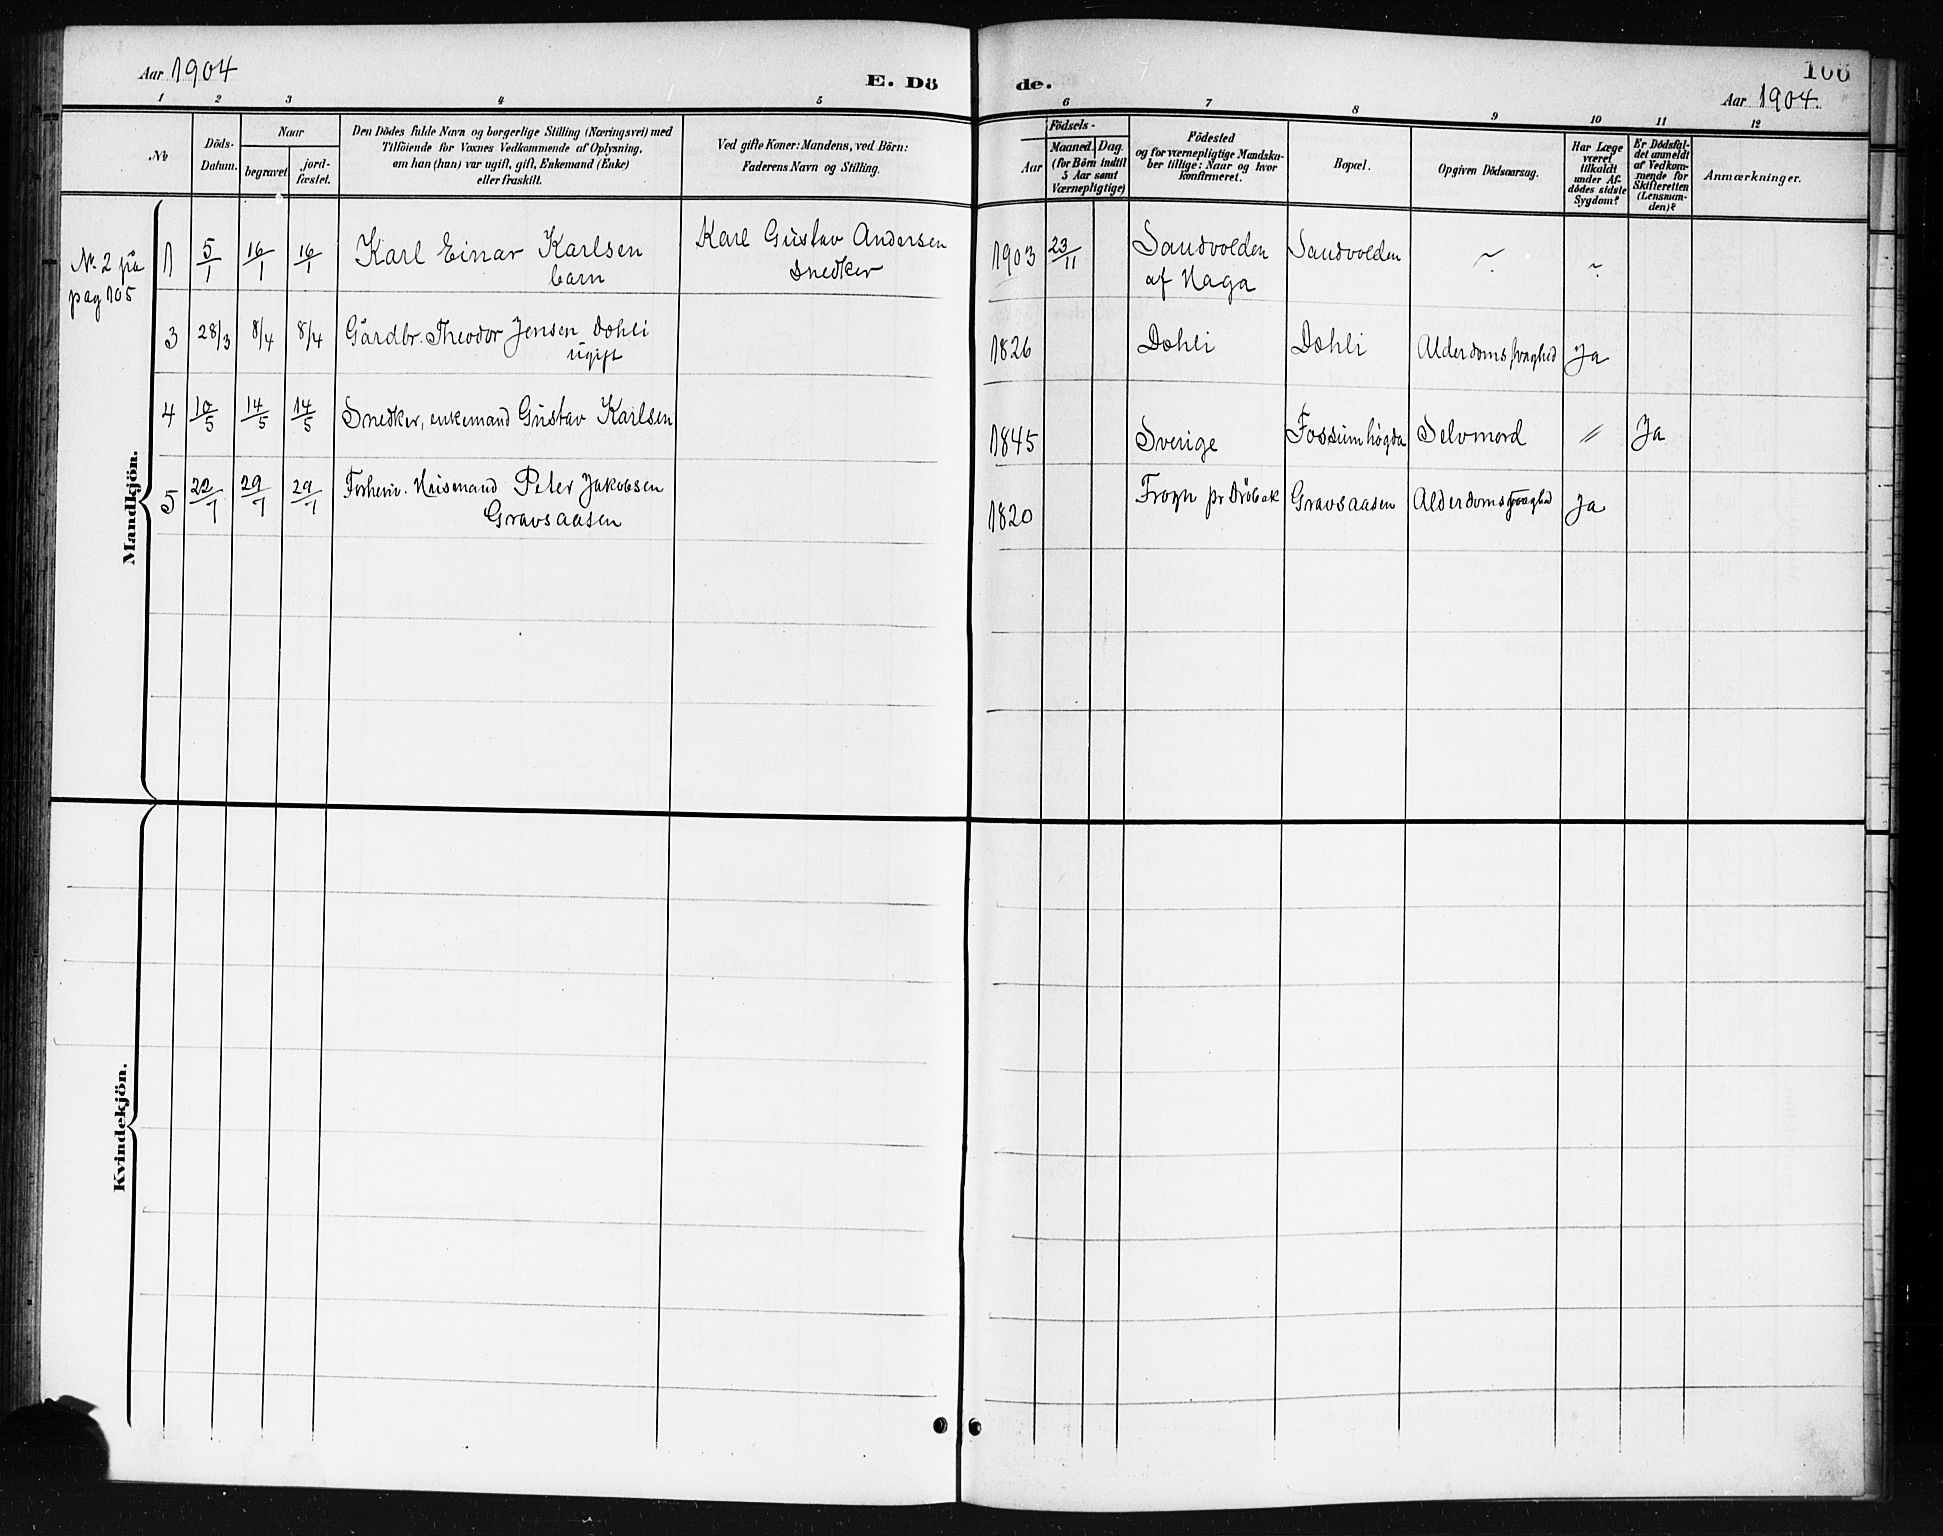 Aar 1904
E. Dö
de.
106
Aar 1904.
1 2 3 4 5
6 7 8 9 10 11 12
No
Döds-
Datum.
Naar
begravet
jord-
fæstet.
Den Dödes fulde Navn og borgerlige Stilling (Næringsvei) med
Tilföiende for Voxnes Vedkommende af Oplysning,
om han (hun) var ugift, gift, Enkemand (Enke)
eller fraskilt.
Ved gifte Koner: Mandens, ved Börn:
Faderens Navn og Stilling.
Födsels-
Aar
Maaned. Dag.
(for Börn indtil
5 Aar samt
Værnepligtige)
Födested
og for værnepligtige Mandska-
ber tillige: Naar og hvor
konfirmeret.
Bopæl.
Opgiven Dödsaarsag.
Har Læge
været
tilkaldt
under Af-
dödes sidste
Sygdom?
Er Dödsfal-
det anmeldt
af Vedkom-
mende for
Skifteretten
(Lensman-
den)?
Anmærkninger.
Mandkjön.
No. 2 på
pag 105
1 5/1 16/1 16/1 Karl Einar Karlsen
barn
Karl Gustav Andersen
Snedker
1903 23/11 Sandvolden
af Haga
Sandvolden ~ ~
3 28/3 8/4 8/4 Gårdbr. Theodor Jensen Dohli
Ugift
1826 Dohli Dohli Alderdomssvaghed Ja
4 10/5 14/5 14/5 Snedker, enkemand Gustav Karlsen
1845 Sverige Fossumhögda Selvmord 〃 Ja
5 22/7 29/7 29/7 Forhenv. Husmand Peter Jakobsen
Gravsaasen
1820 Frogn pr Dröbak Gravsaasen Alderdomssvaghed Ja
Kvindekjön.